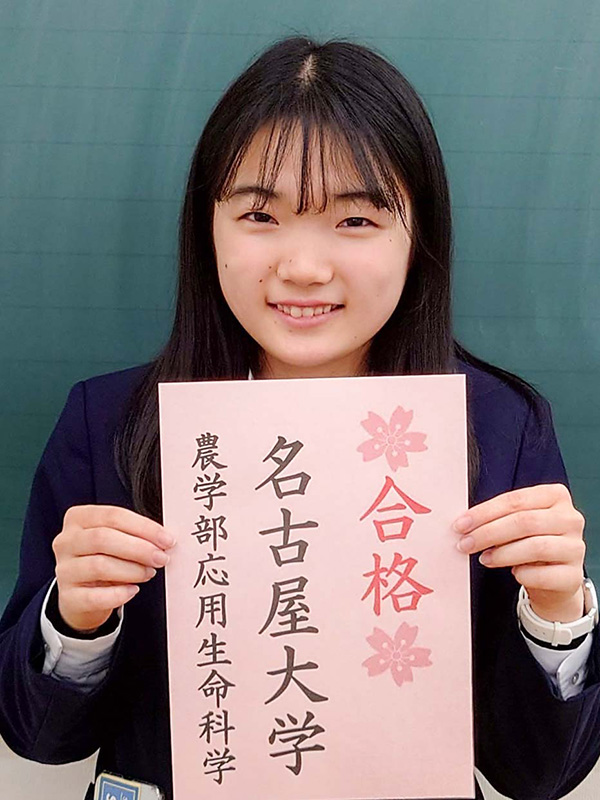 合格
名古屋大学
農学部応用生命科学